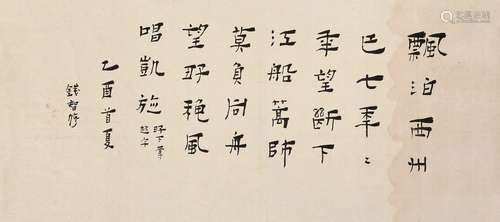 飄泊西州
已七秊〻
秊望斷下
江船篙師
莫負同舟
望好穩風
唱凱旋
好下奪
趁字
乙酉首夏
錢智修